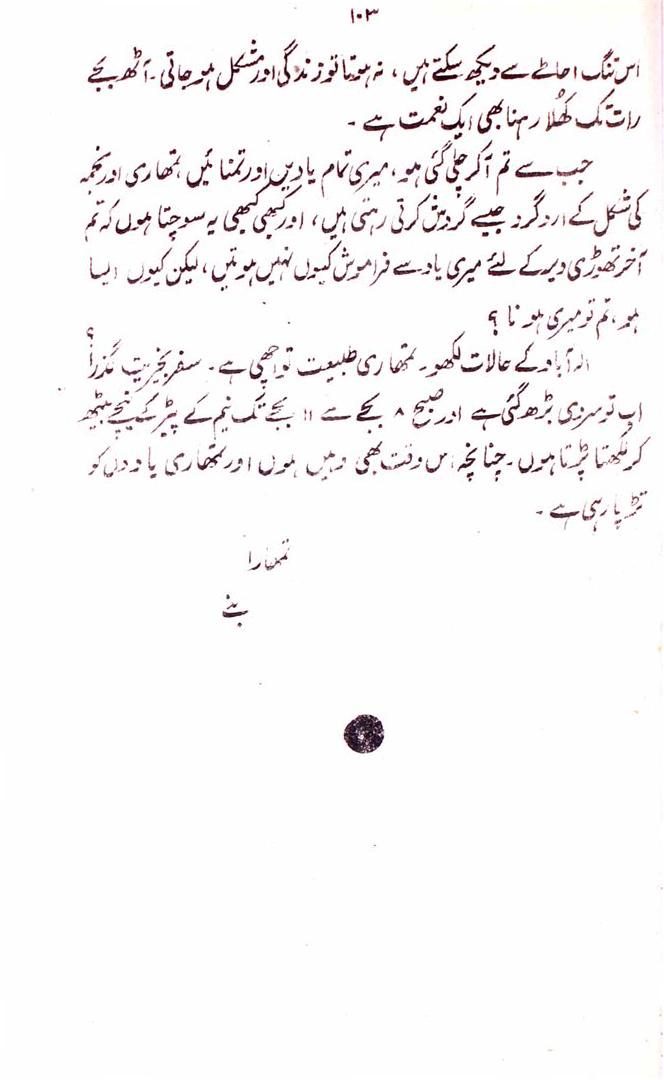 ۱۰۳
اس تنگ احاطے سے دیکھ سکتے ہیں، نہ ہوتا تو زندگی اور مشکل ہو جاتی۔ آٹھ بجے
رات تک کھُلا رہنا بھی ایک نعمت ہے۔
جب سے تم آکر چلی گئی ہو، میری تمام یادیں اور تمنائیں تمھاری اور نجمہ
کی شکل کے ارد گرد جیسے گردش کرتی رہتی ہیں، اور کبھی کبھی یہ سوچتا ہوں کہ تم
آخر تھوڑی دیر کے لئے میری یاد سے فراموش کیوں نہیں ہوتیں، لیکن کیوں ایسا
ہو، تم تو میری ہو نا ؟
الہ آباد کے حالات لکھو۔ تمھاری طبیعت تو اچھی ہے۔ سفر بخیریت گذرا ؟
اب تو سردی بڑھ گئی ہے اور صبح ۸ بجے سے ۱۱ بجے تک نیم کے پیڑ کے نیچے بیٹھ
کر لکھتا پڑھتا ہوں۔ چنانچہ اس وقت بھی وہیں ہوں اور تمھاری یاد دل کو
تڑپا رہی ہے۔
تمھارا
بنے